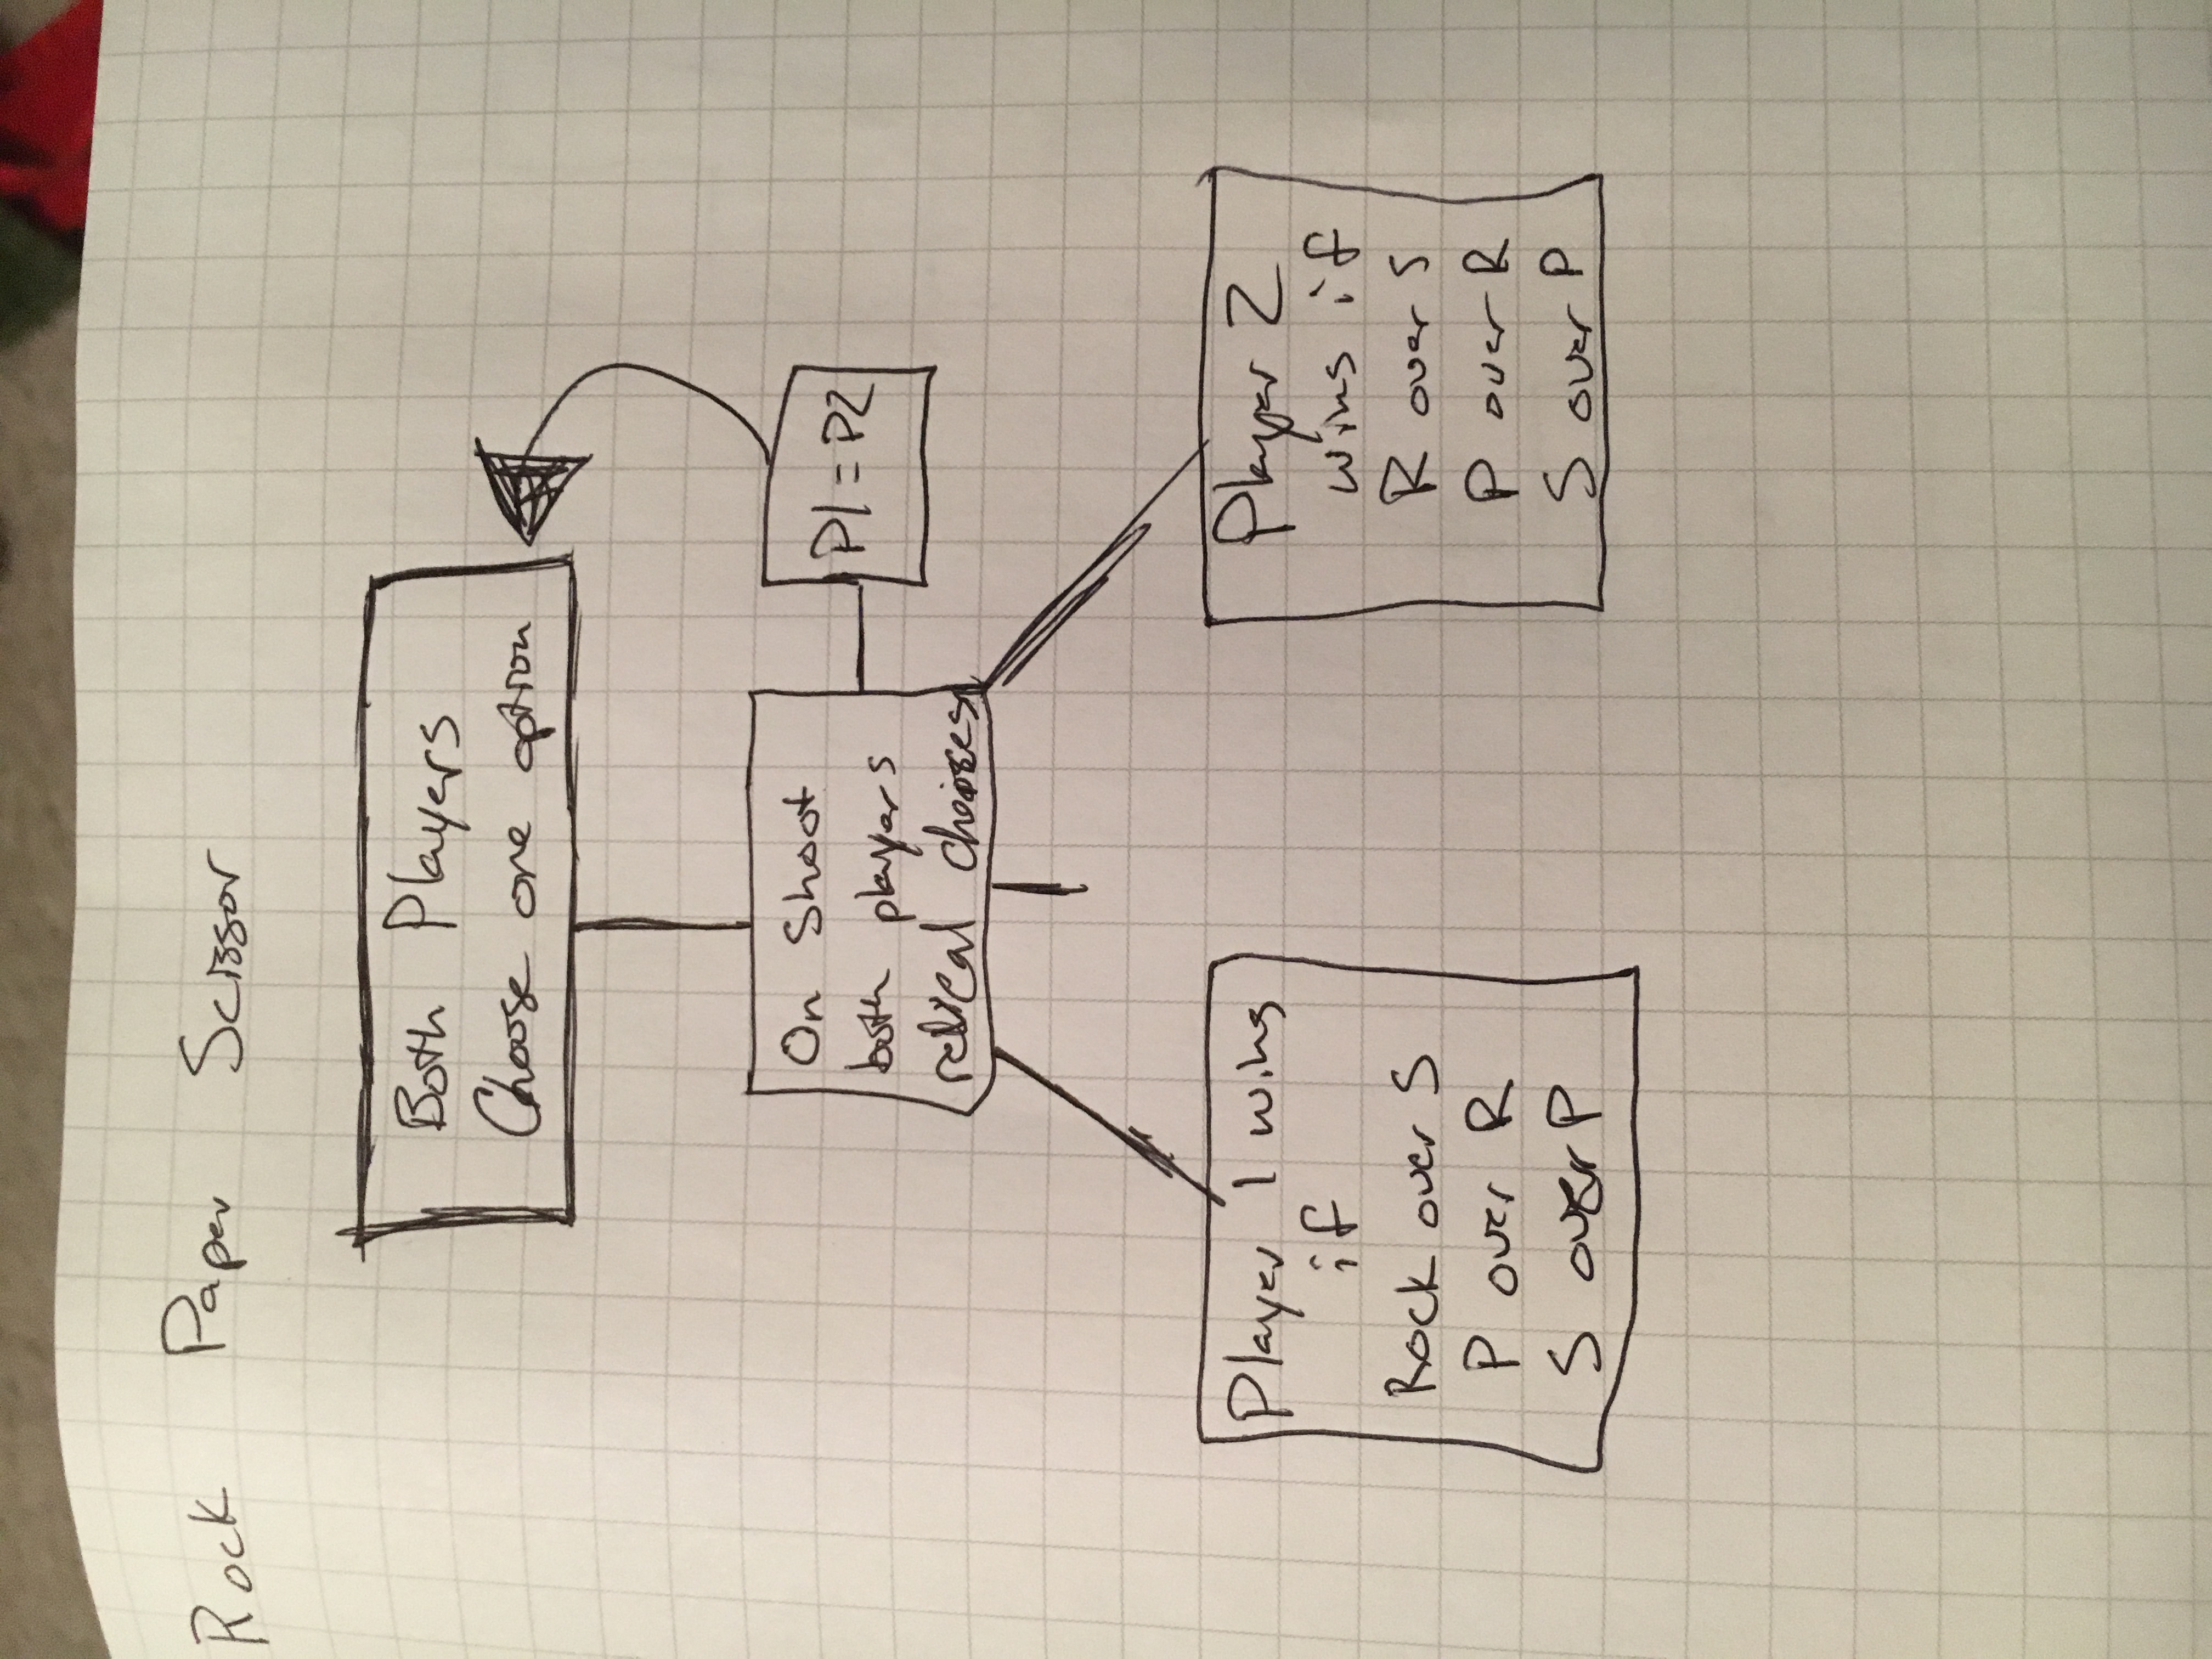 Rock Paper Scissor
Both Players
Choose one option
On Shoot
both players
choices
P1 = P2
Player 1 wins
if
Rock over S
P over R
S over P
Player 2
wins if
R over S
P over R
S over P